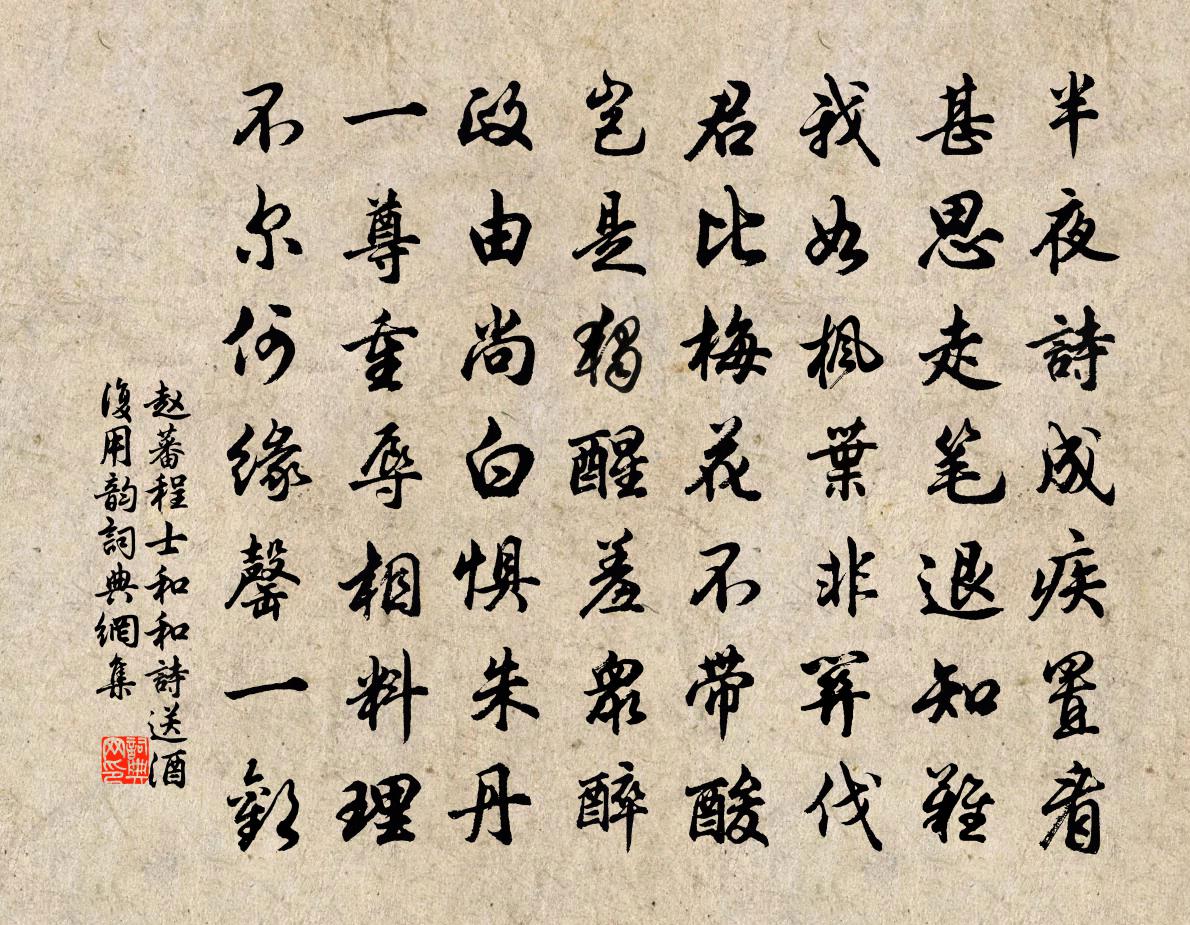 半夜詩成疾置看
甚思走笔退知難
我如楓葉非伐
君比梅花不带酸
岂是獨醒羞眾醉
政由尚白惧朱丹
一尊重辱相料理
不尔何缘罄一歡
赵蕃程士和和詩送酒
復用韵詞典網集
詞典網印